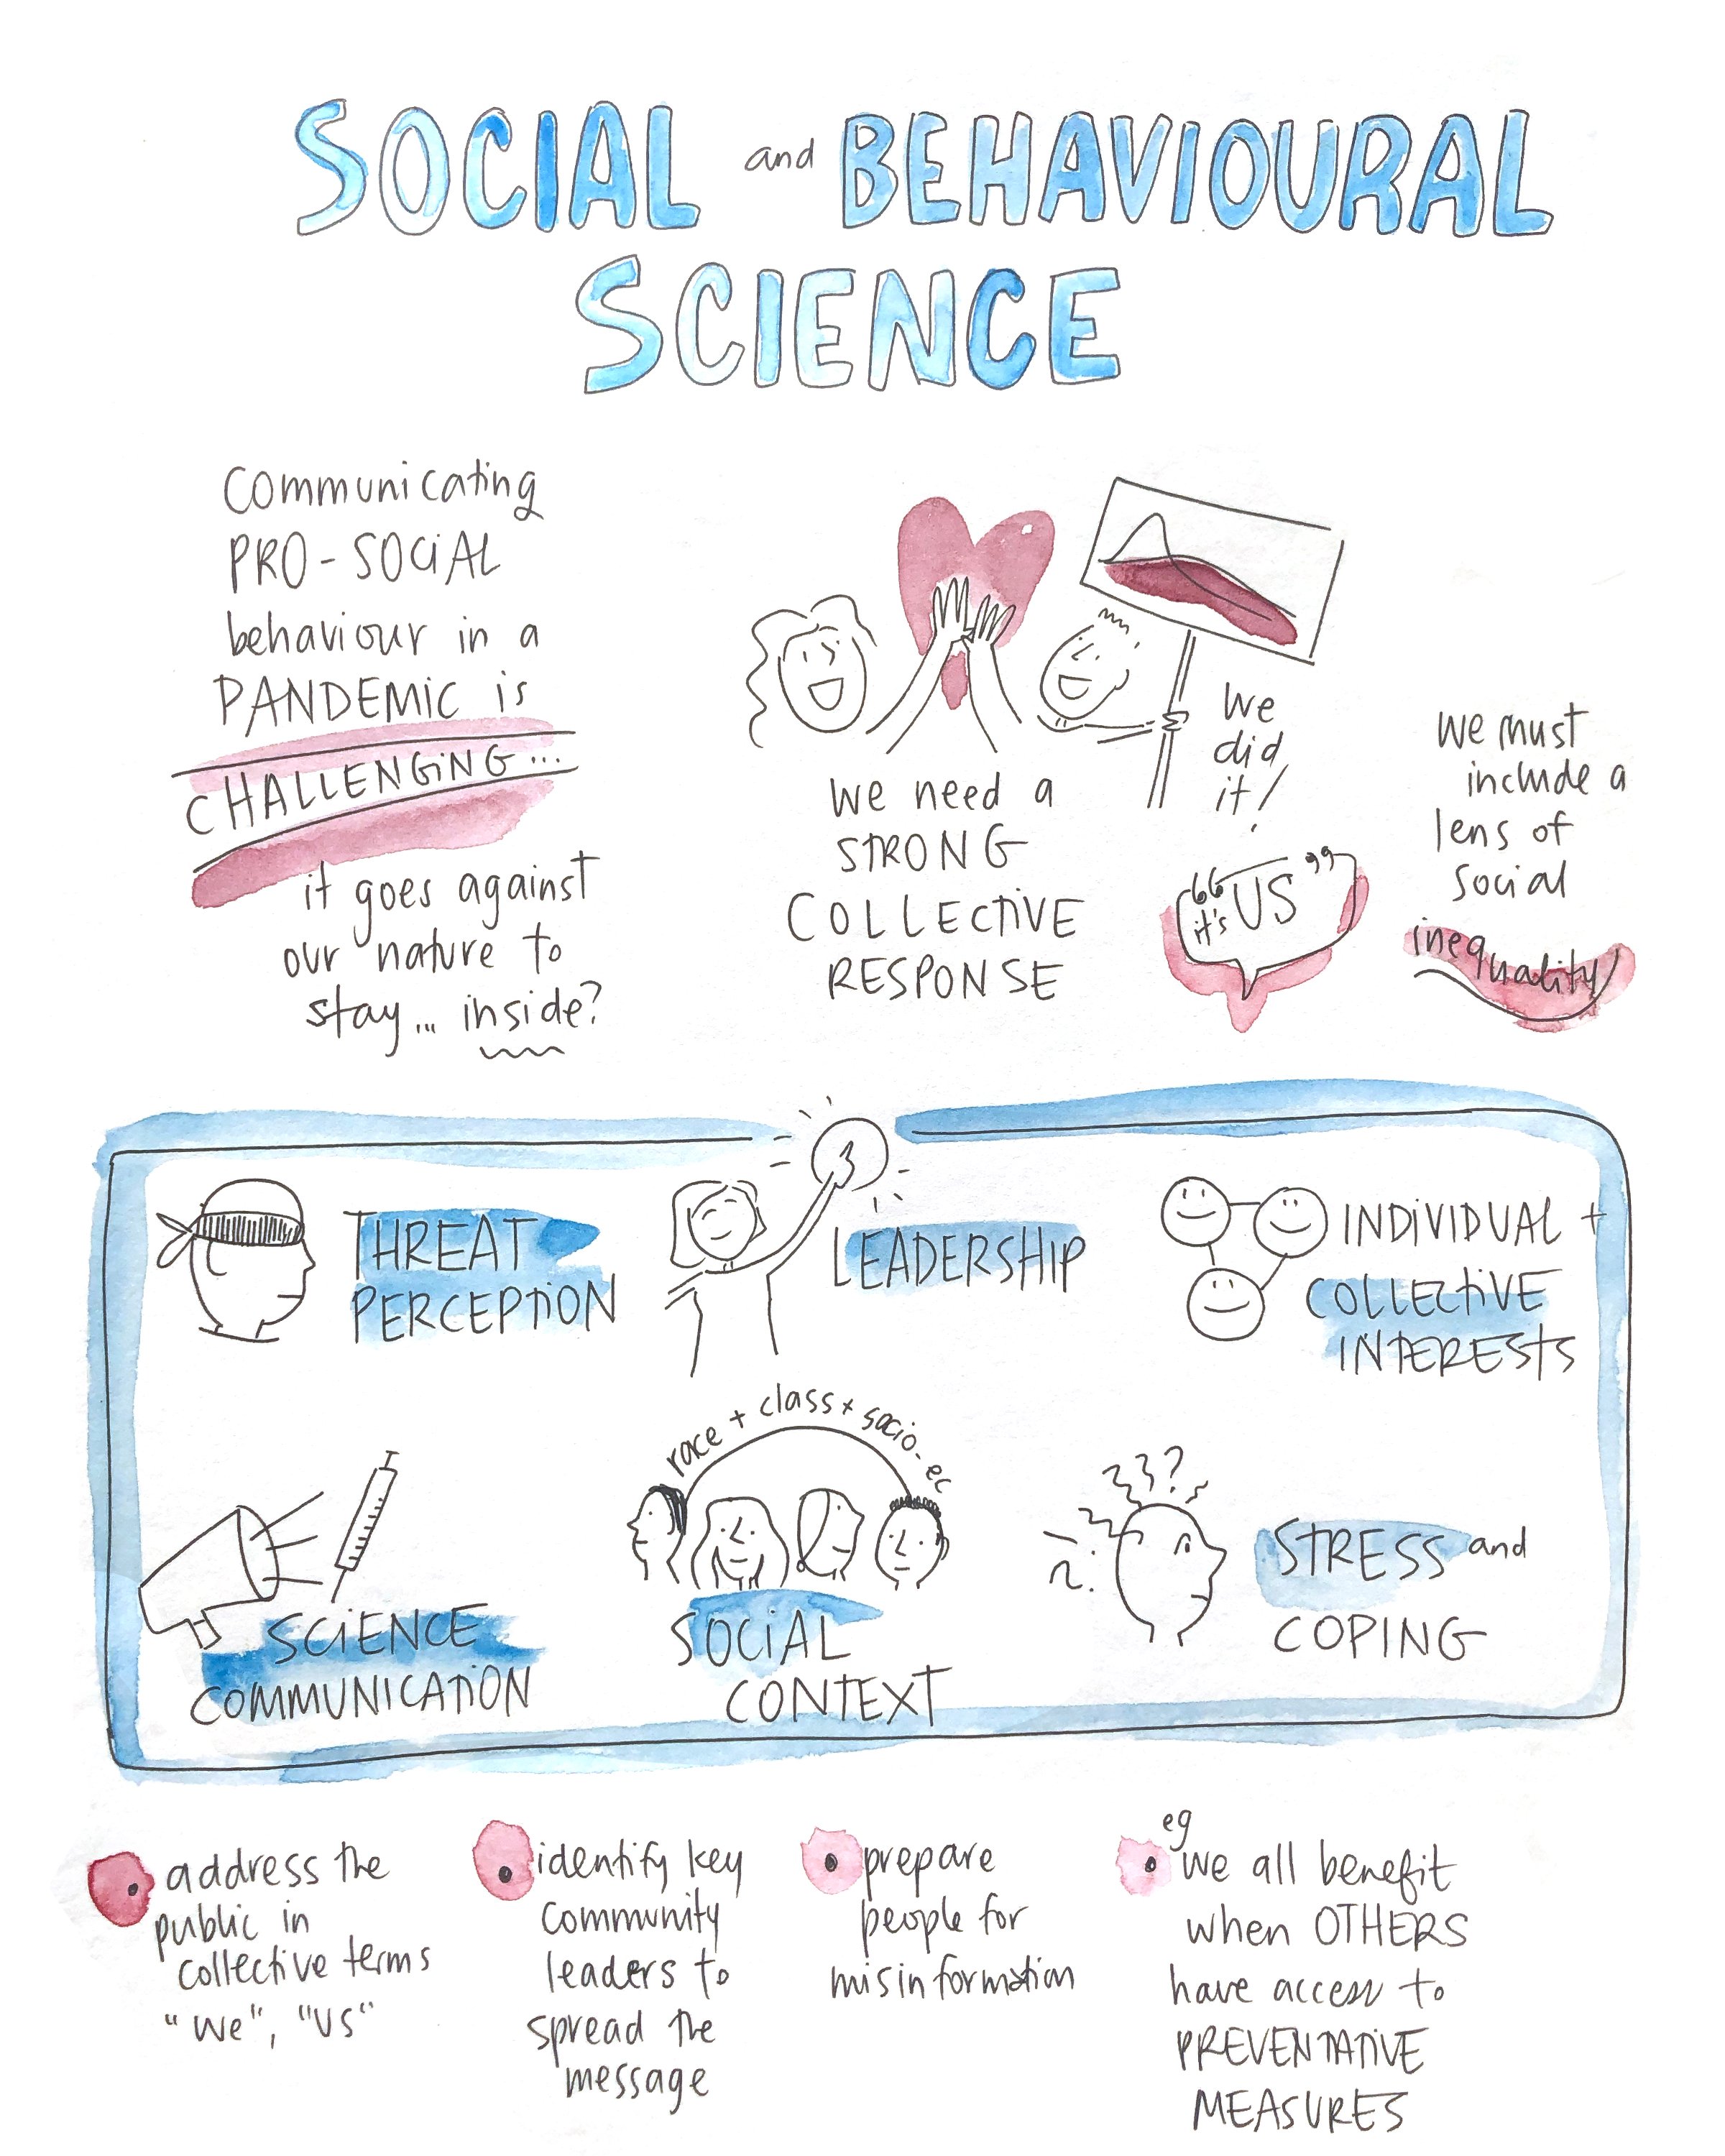 SOCIAL and BEHAVIOURAL
SCIENCE
Communicating
PRO-SOCIAL
behaviour in a
PANDEMIC is
CHALLENGING...
it goes against
our nature to
stay... inside?
We need a
STRONG
COLLECTIVE
RESPONSE
We
did
it!
"it's US"
We must
include a
lens of
social
inequality
THREAT
PERCEPTION
LEADERSHIP
INDIVIDUAL +
COLLECTIVE
INTERESTS
SCIENCE
COMMUNICATION
race + class + socio-ec
SOCIAL
CONTEXT
???
STRESS and
COPING
address the
public in
collective terms
"We", "US"
identify key
community
leaders to
spread the
message
prepare
people for
misinformation
eg
We all benefit
when OTHERS
have access to
PREVENTATIVE
MEASURES